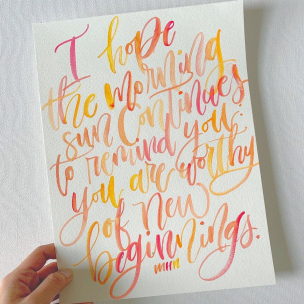 I hope
the morning
sun continues
to remind you
you are worthy
of new
beginnings.